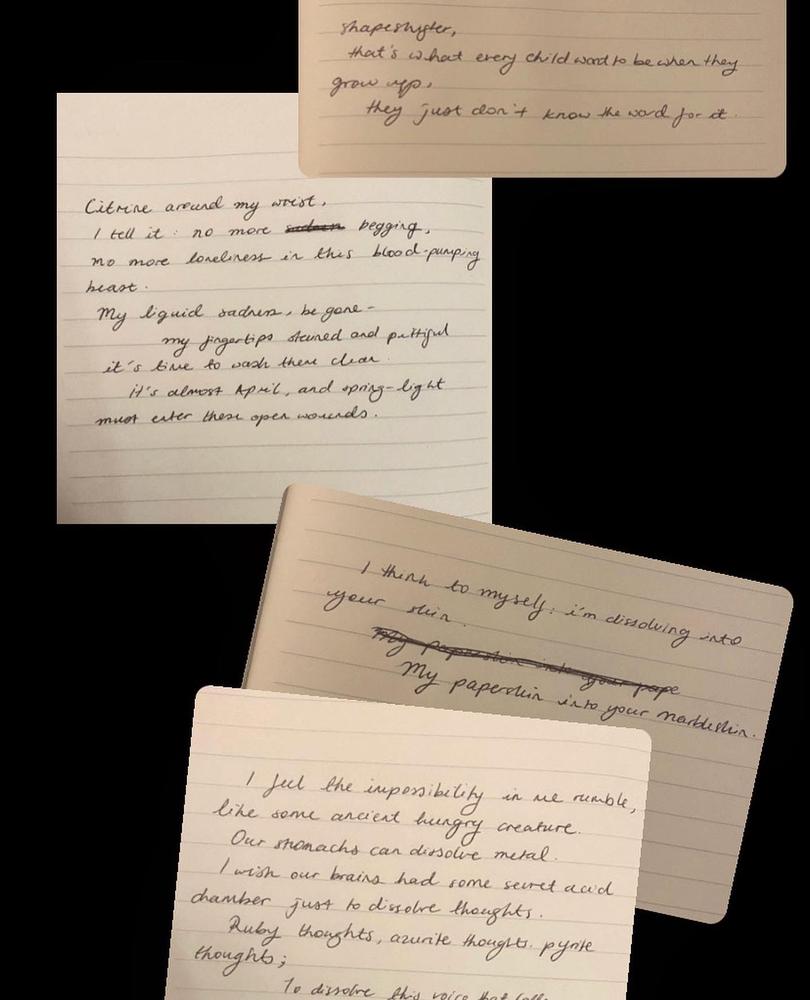 shapeshyter,
that's what every child want to be when they
grow up,
they just don't know the word for it.
Citrine around my wrist,
I tell it: no more sadness begging,
no more loneliness in this blood-pumping
beast.
My liquid sadness, be gone-
my fingertips stained and pettiful
it's time to wash them clear.
it's almost April, and spring-light
must enter these open wounds.
I think to myself: i'm dissolving into
your skin.
My paperskin into your pape
My paperskin into your marbleskin.
I feel the impossibility in me rumble,
like some ancient hungry creature.
Our stomachs can dissolve metal.
I wish our brains had some secret acid
chamber just to dissolve thoughts.
Ruby thoughts, azurite thoughts. pyrite
thoughts;
To dissolve this voice that